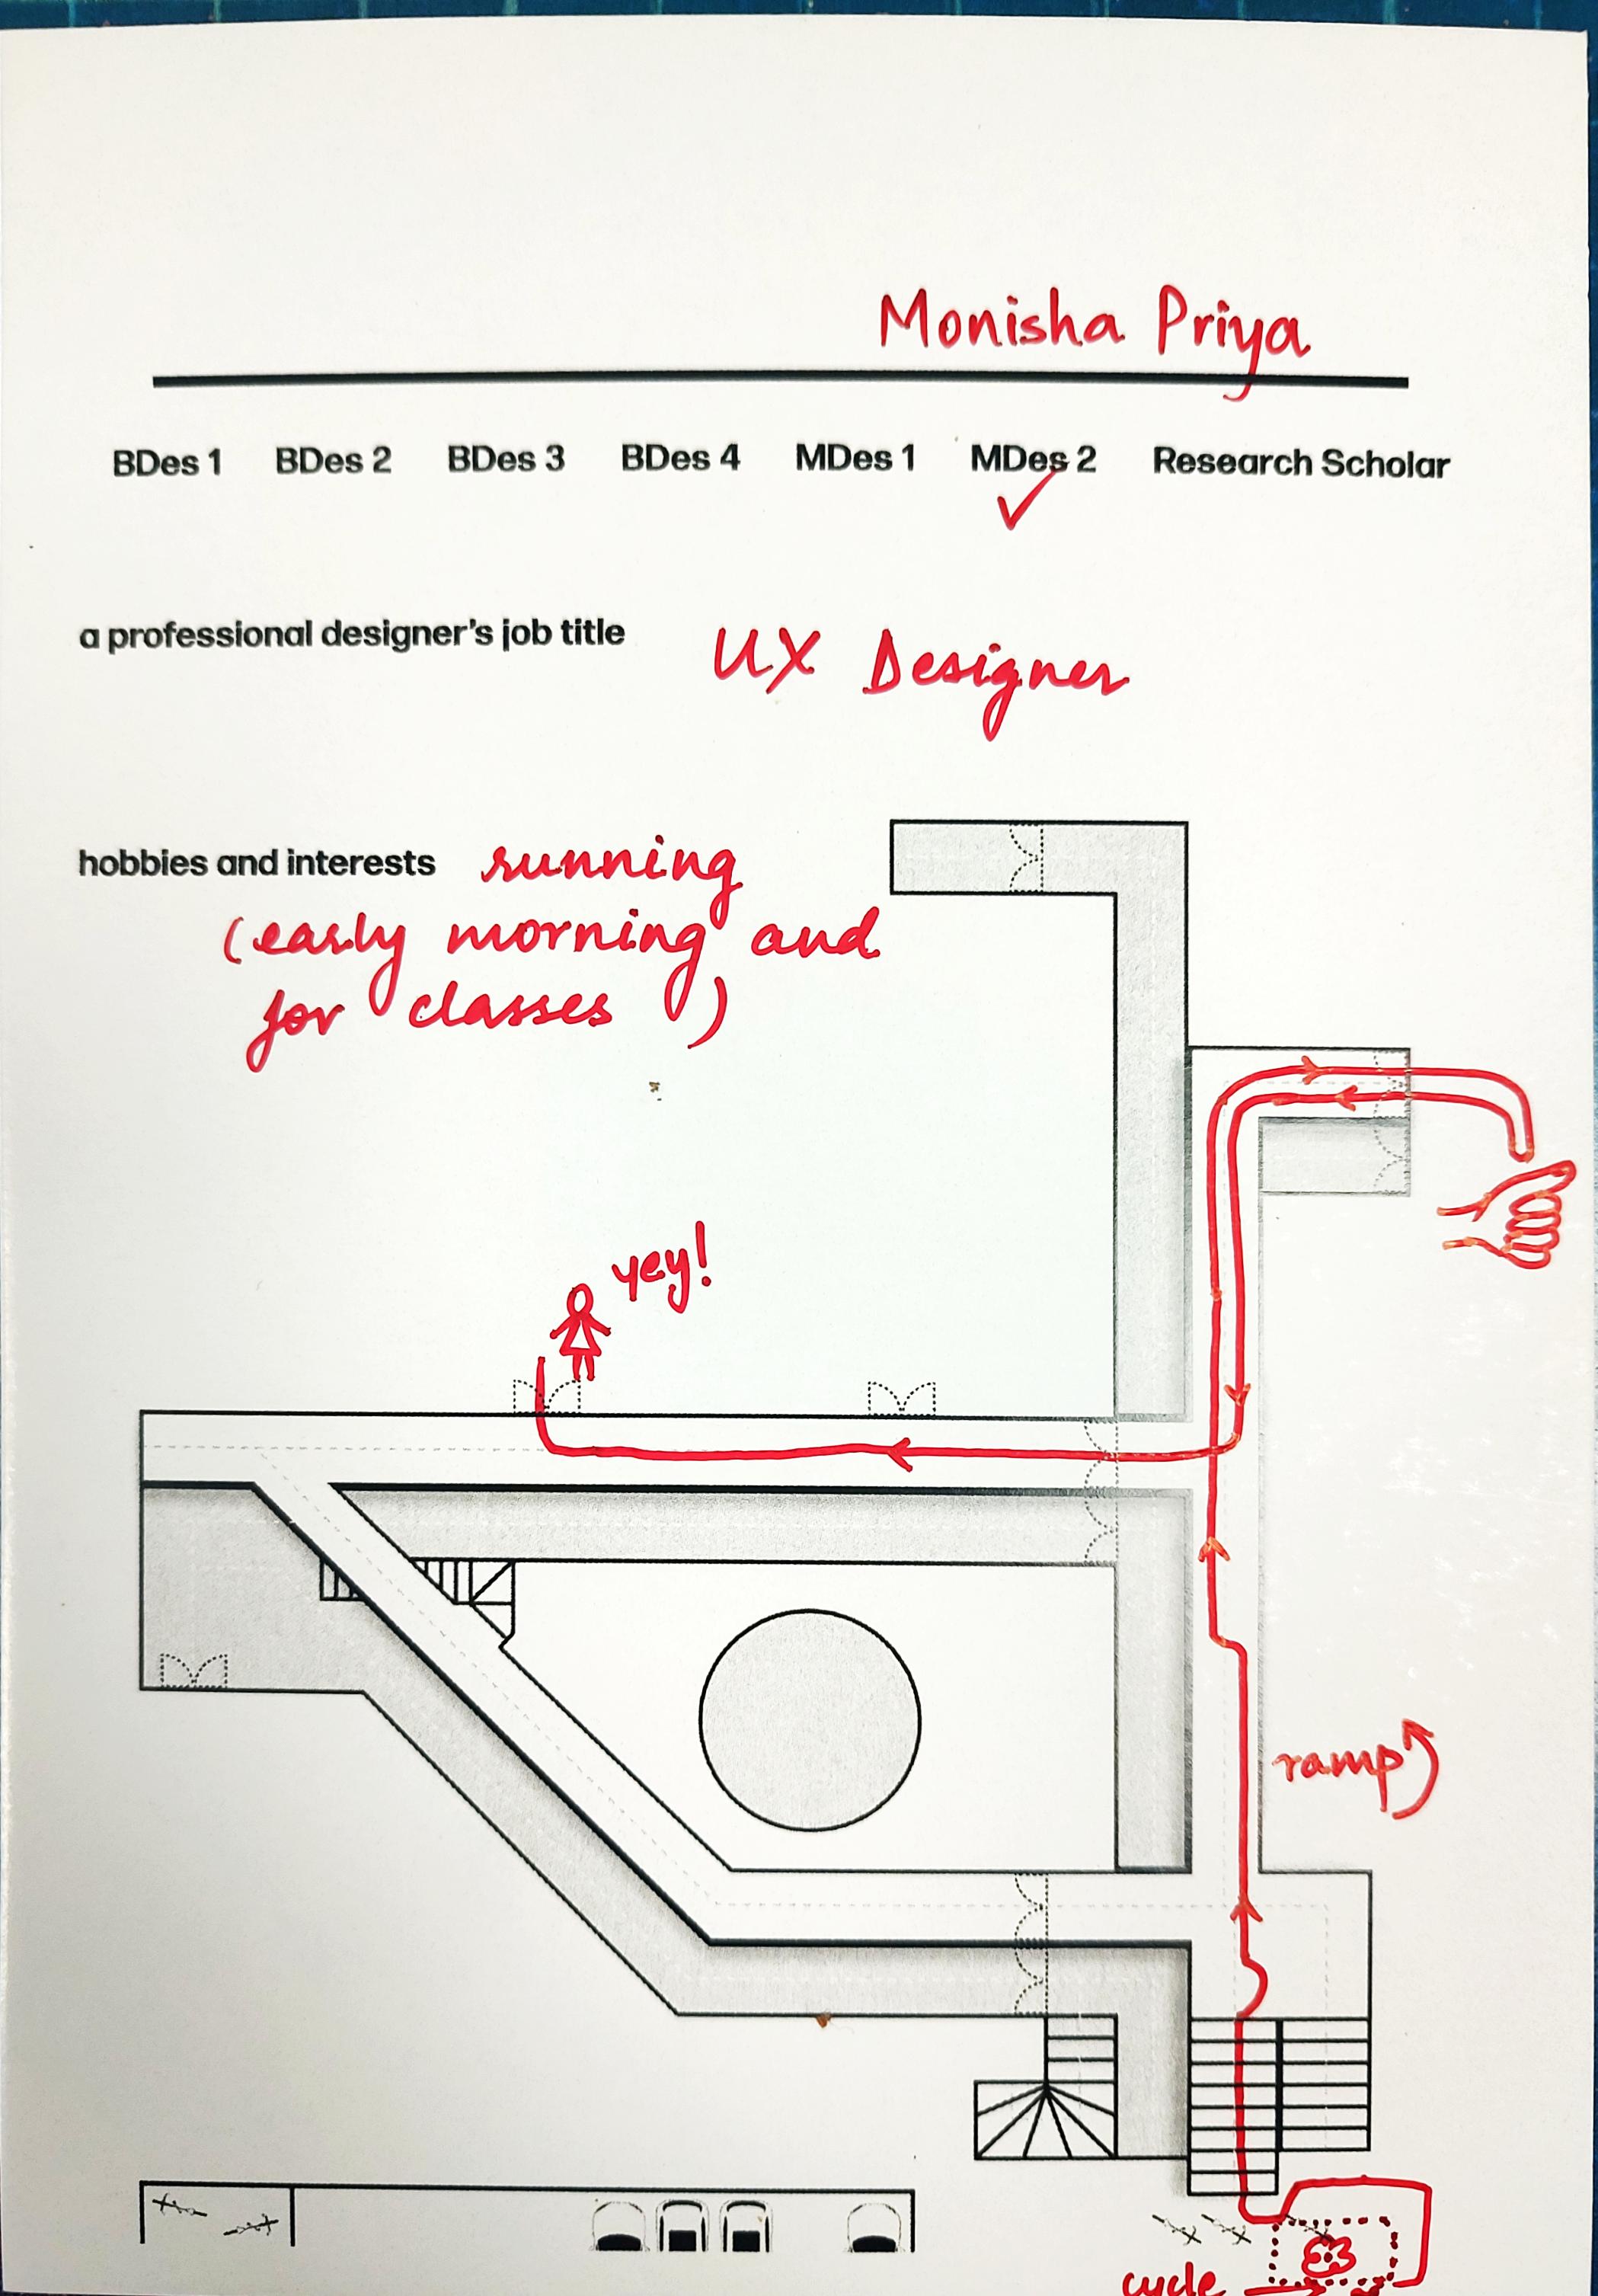 Monisha Priya
BDes 1 BDes 2 BDes 3 BDes 4 MDes 1 MDes 2 Research Scholar
a professional designer's job title UX Designer
hobbies and interests running
(early morning and
for classes )
yey!
ramp
cycle